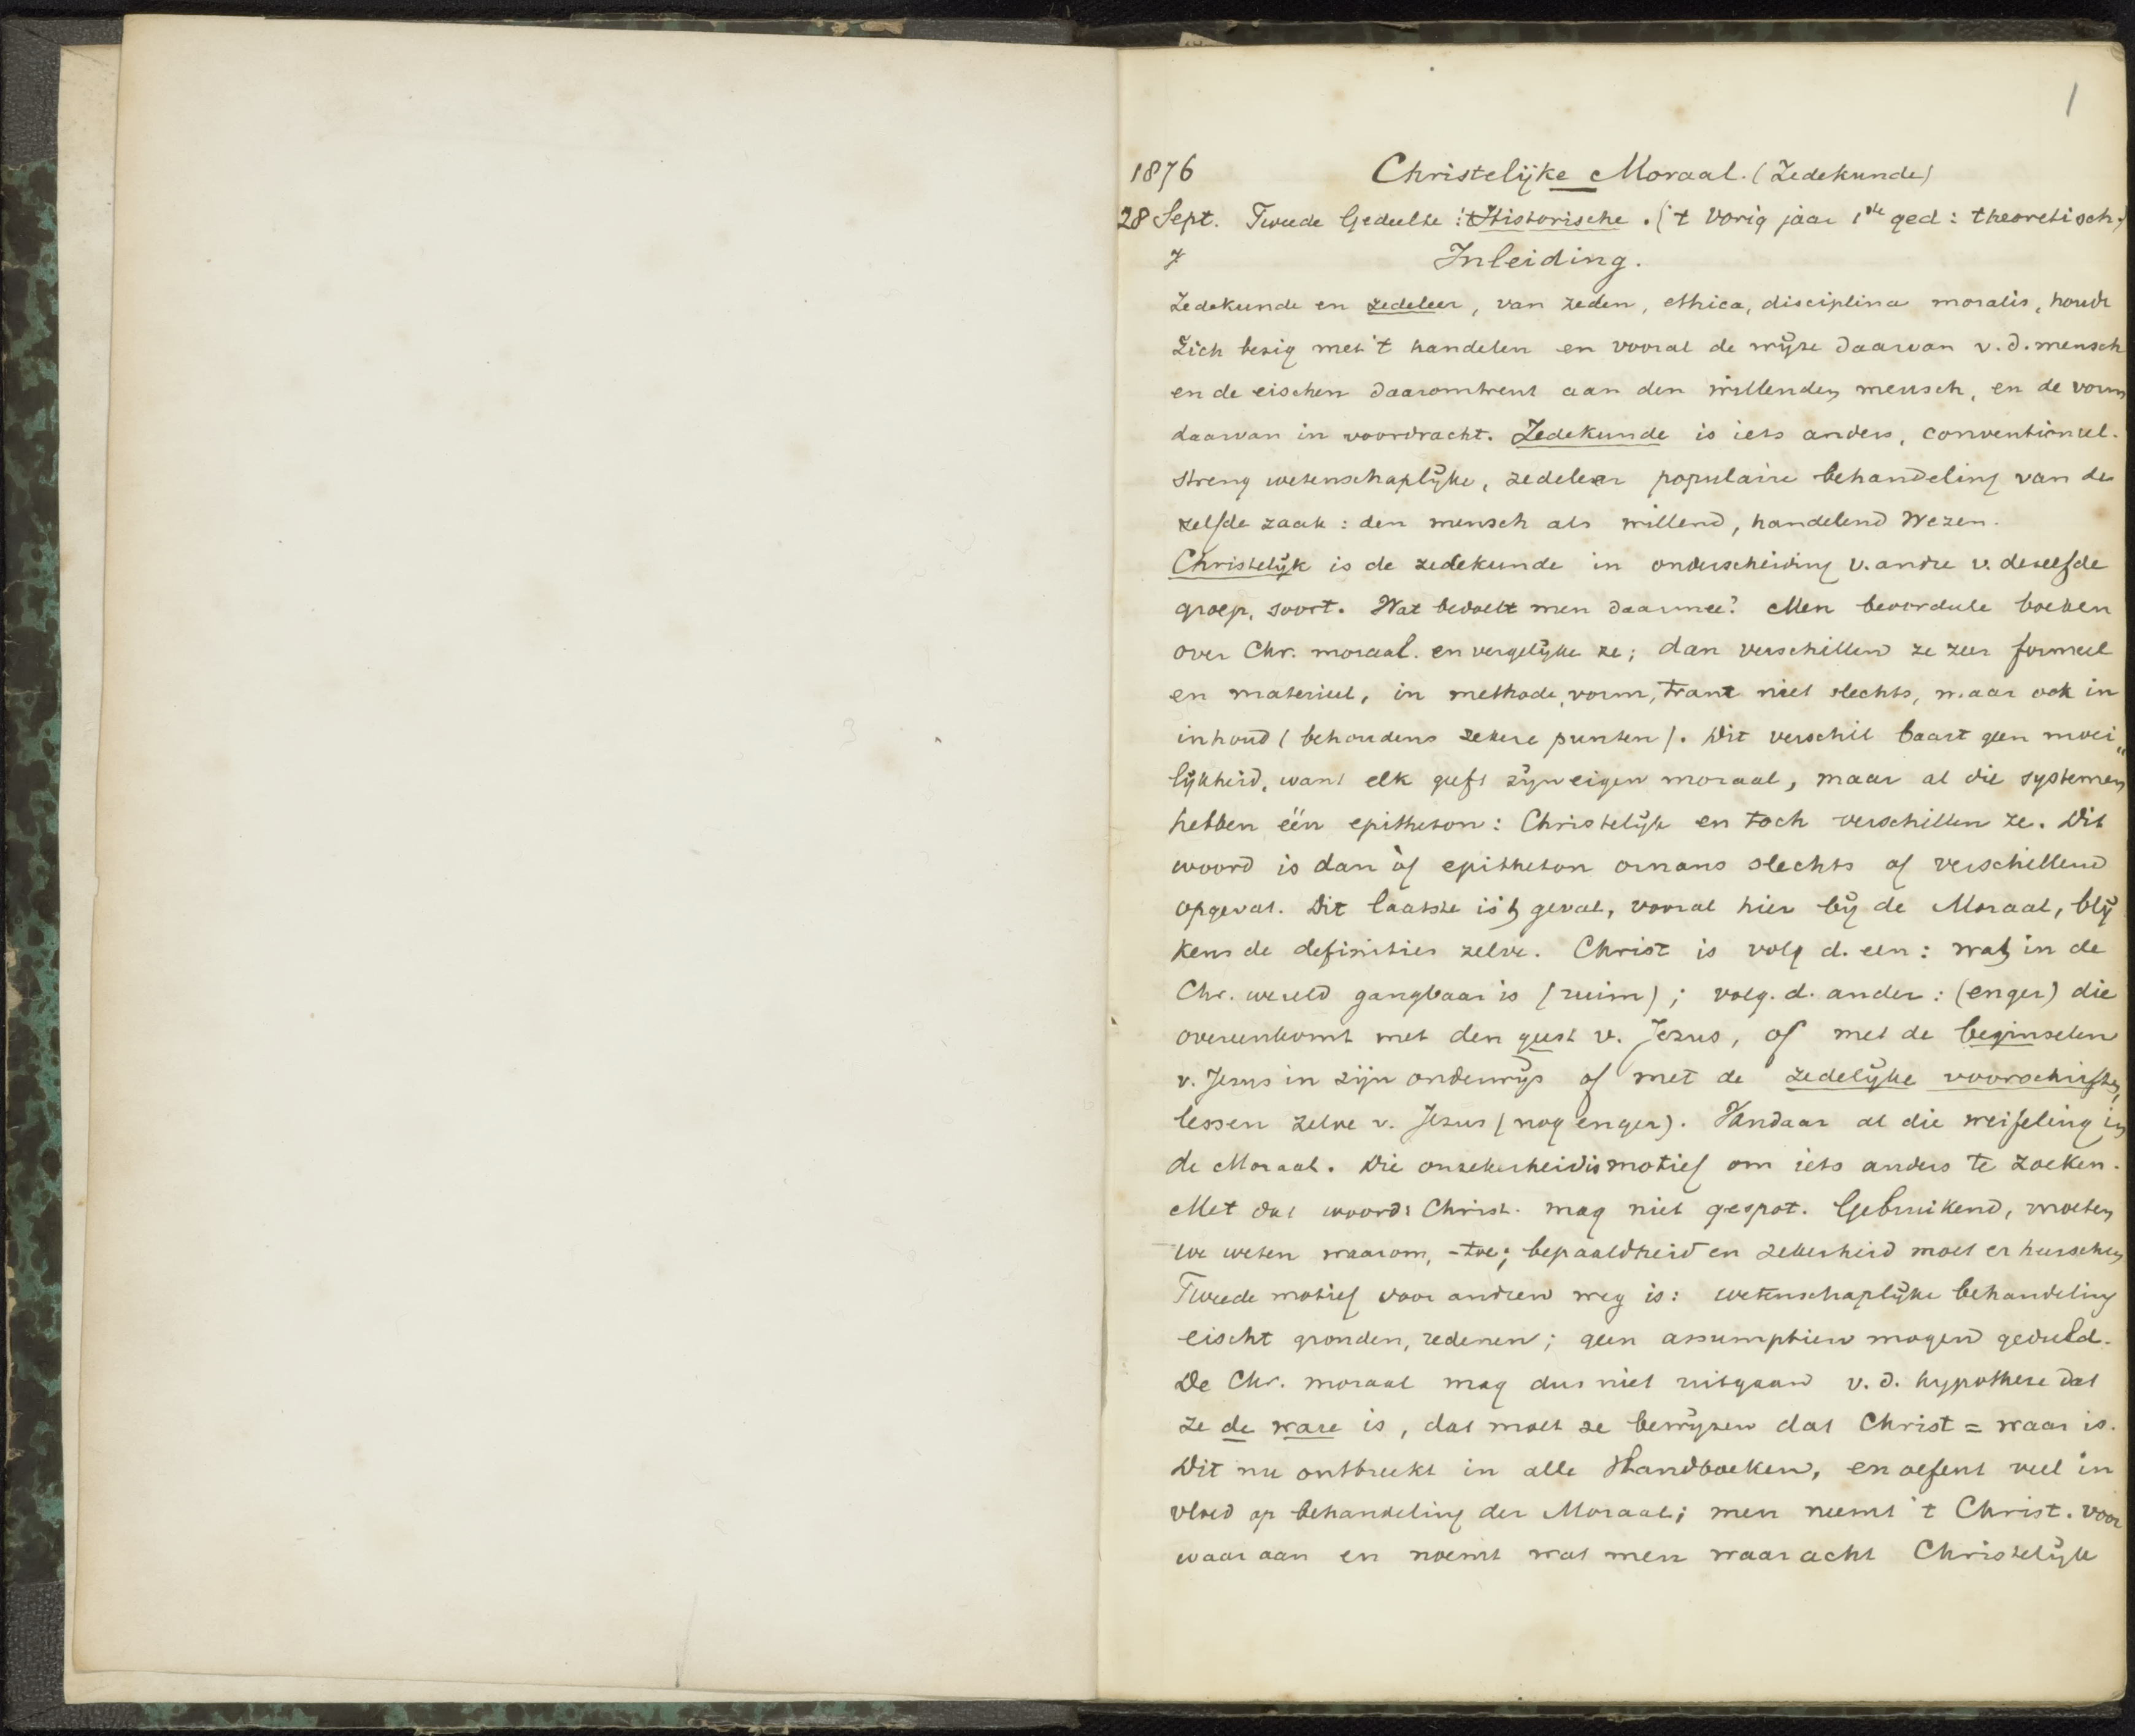 1
1876 Christelijke Moraal. (Zedekunde)
28 Sept. Tweede Gedeelte: 't Historische. ('t vorig jaar 1ste ged: theoretisch.)
Inleiding.
Zedekunde en zedeleer, van zeden, ethica, disciplina moralis, houdt
zich bezig met 't handelen en vooral de wijze daarvan v. d. mensch
en de eischen daaromtrent aan den willenden mensch, en de vorm
daarvan in voordracht. Zedekunde is iets anders, conventioneel.
streng wetenschaplijke, zedeleer populaire behandeling van de
zelfde zaak: den mensch als willend, handelend wezen.
Christelijk is de zedekunde in onderscheiding v. andre v. dezelfde
groep, soort. Wat bedoelt men daarmee? Men beoordeele boeken
over Chr. moraal. en vergelijke ze; dan verschillen ze zeer formeel
en materieel, in methode, vorm, trant niet slechts, maar ook in
inhoud (behoudens zekere punten). Dit verschil baart geen moei„
lijkheid, want elk geeft zijn eigen moraal, maar al die systemen
hebben één epitheton: Christelijk en toch verschillen ze. Dit
woord is dan òf epitheton ornans slechts of verschillend
opgevat. Dit laatste is 't geval, vooral hier bij de Moraal, blij
kens de definities zelve. Christ is volg d. een: wat in de
Chr. wereld gangbaar is (ruim); volg. d. ander: (enger) die
overeenkomt met den geest v. Jezus, of met de beginselen
v. Jezus in zijn onderwijs of met de zedelijke voorschriften,
lessen zelve v. Jezus (nog enger). Vandaar al die weifeling in
de Moraal. Die onzekerheid is motief om iets anders te zoeken.
Met dat woord: Christ. mag niet gespot. Gebruikend, moeten
we weten waarom, -toe; bepaaldheid en zekerheid moet er heerschen
Tweede motief voor andren weg is: wetenschaplijke behandeling
eischt gronden, redenen; geen assumptien mogen geduld.
De Chr. moraal mag dus niet uitgaan v. d. hypothese dat
ze de ware is, dat moet ze bewijzen dat Christ = waar is.
Dit nu ontbreekt in alle Handboeken, en oefent veel in
vloed op behandeling der Moraal; men neemt 't Christ. voor
waar aan en noemt wat men waar acht Christelijk